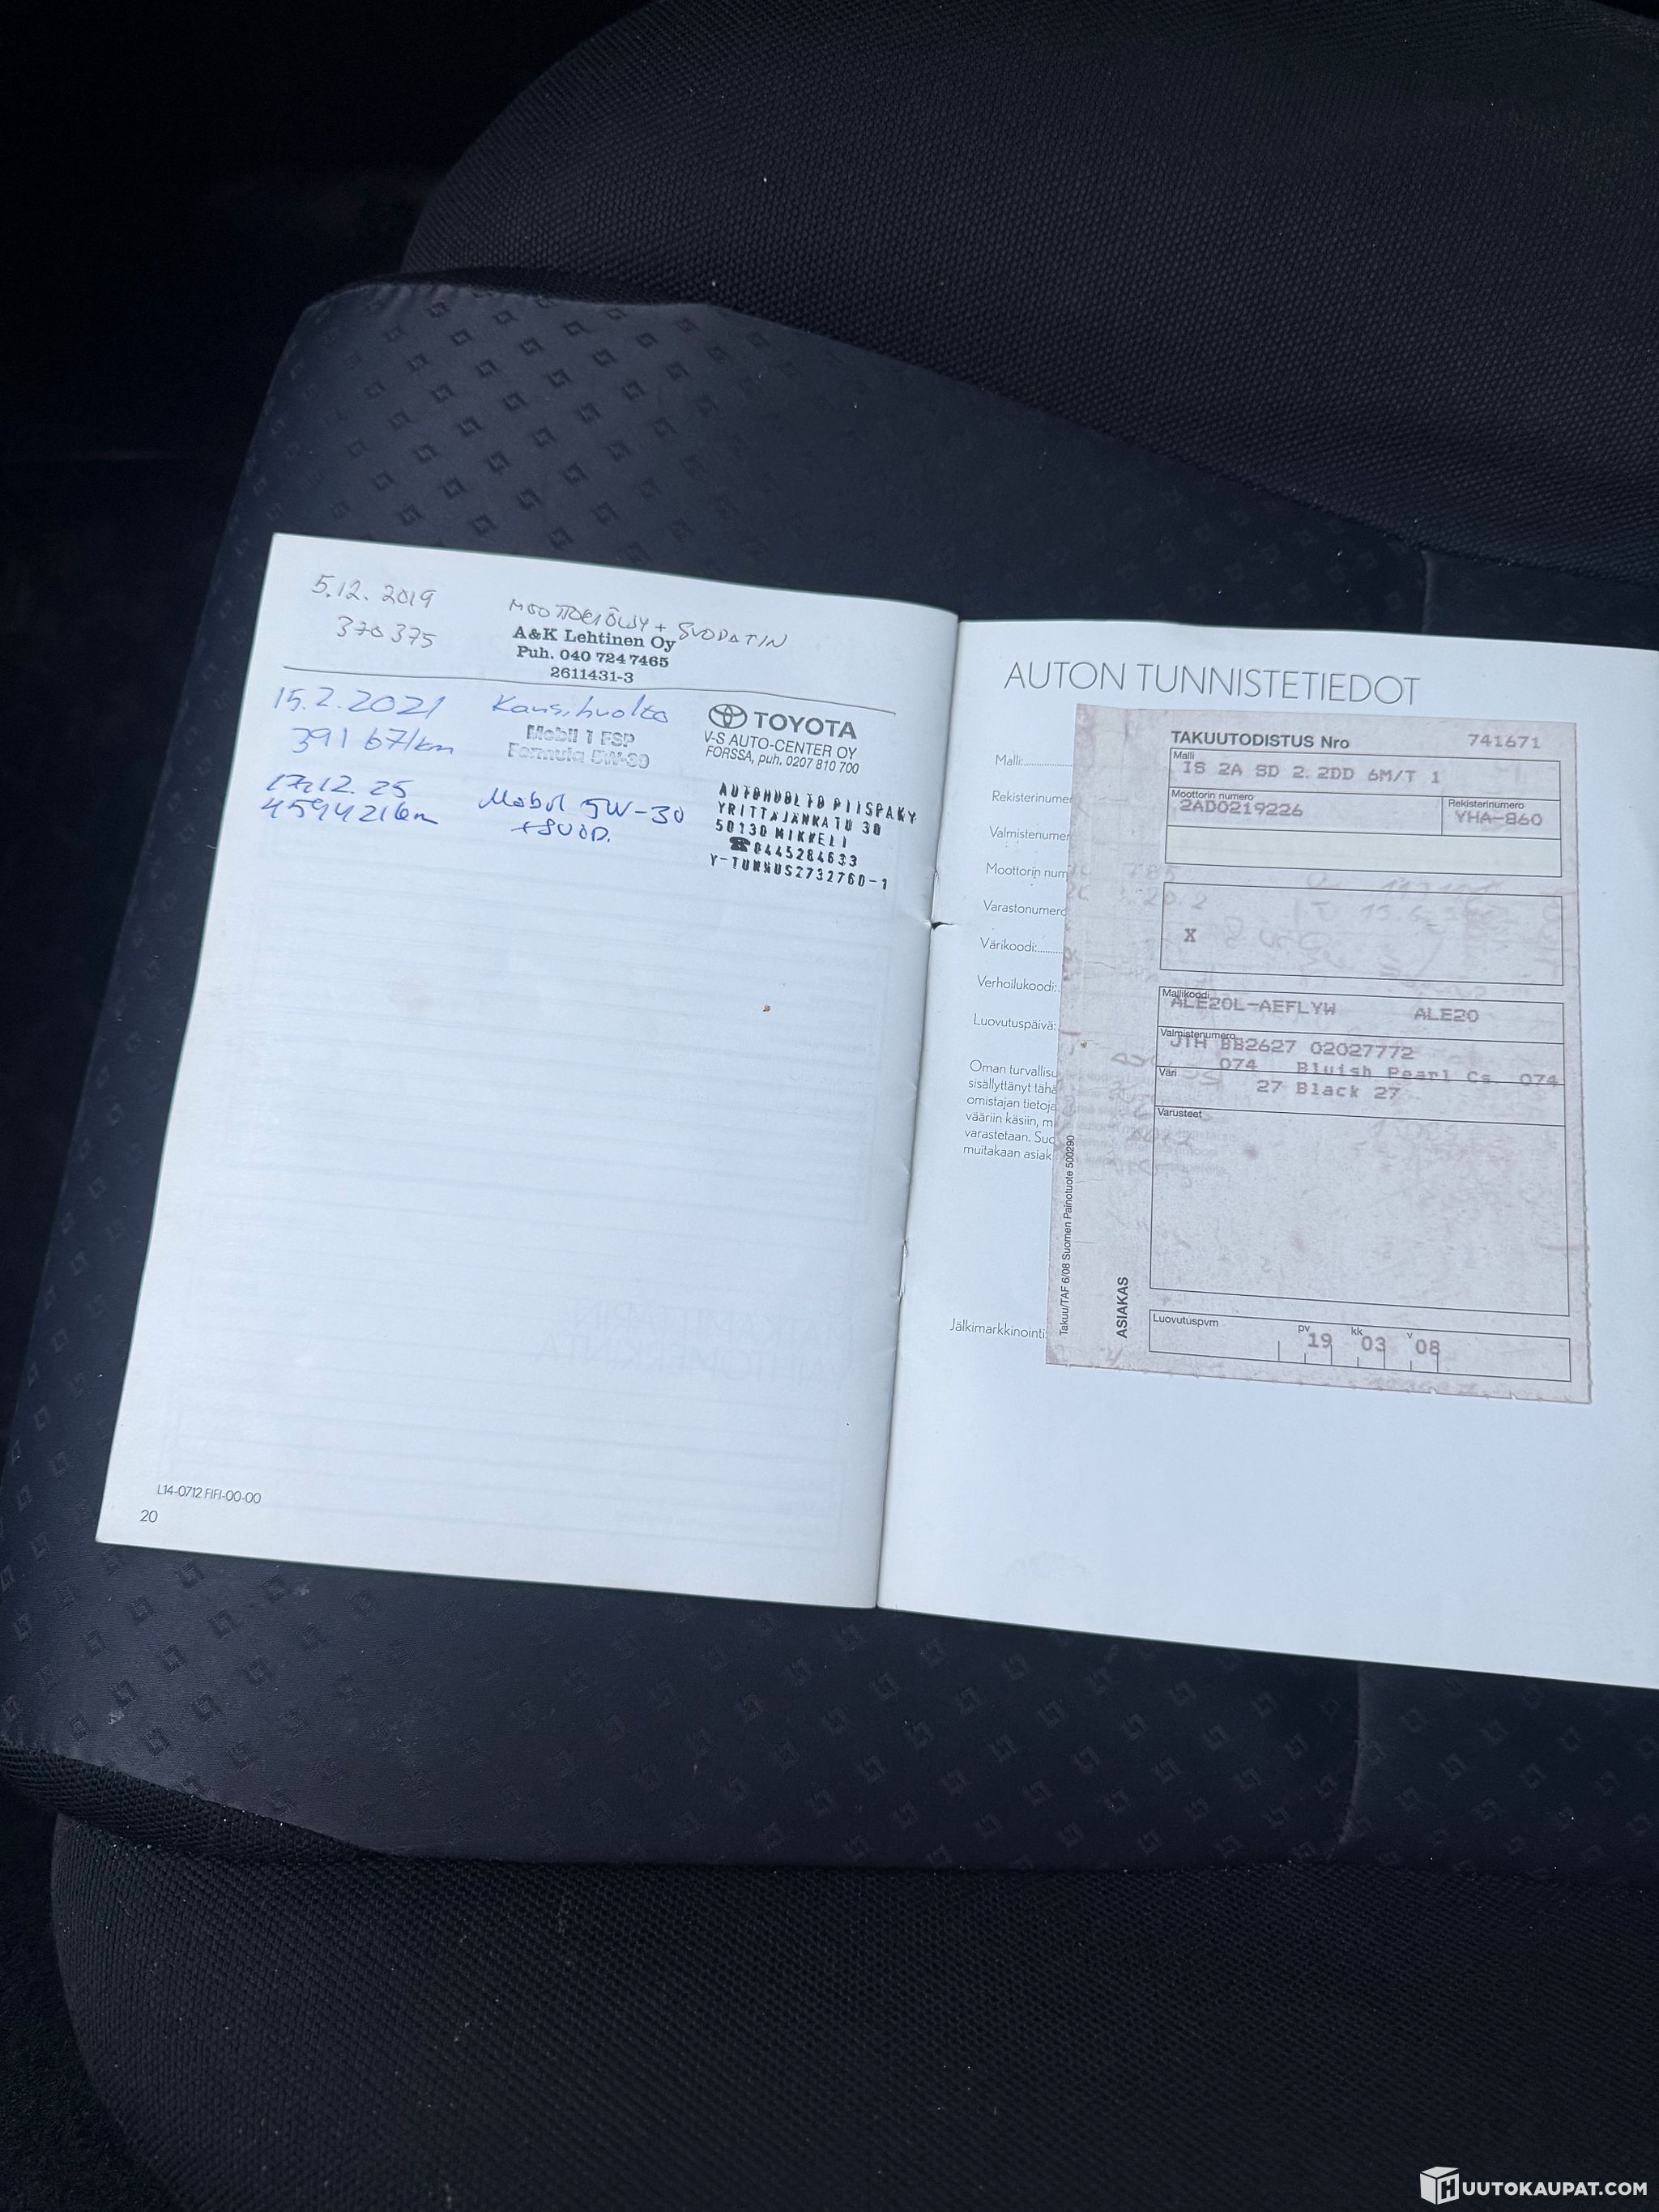 5.12. 2019
370 375
MOOTTORIÖLJY + SUODATIN
A&K Lehtinen Oy
Puh. 040 724 7465
2611431-3
15.2.2021
391 671km
Kausihuolto
Mobil 1 FSP
Formula 5W-30
TOYOTA
V-S AUTO-CENTER OY
FORSSA, puh. 0207 810 700
17.12. 25
459421km
Mobil 5W-30
+SUOD.
AUTOHUOLTO PIISPAKY
YRITTÄJÄNKATU 30
50130 MIKKELI
☎0445284633
Y-TUNNUS2732760-1
L14-0712 FIFI-00-00
20
AUTON TUNNISTETIEDOT
Malli:
Rekisterinume
Valmistenume
Moottorin num
Varastonumero
Värikoodi:
Verhoilukoodi:
Luovutuspäivä:
Oman turvallisu
sisällyttänyt tähä
omistajan tietoja
vääriin käsiin, m
varastetaan. Suo
muitakaan asiak
Jälkimarkkinointi:
TAKUUTODISTUS Nro 741671
Malli
IS 2A SD 2.2DD 6M/T 1
Moottorin numero
2AD0219226
Rekisterinumero
YHA-860
X
Mallikoodi
ALE20L-AEFLYW ALE20
Valmistenumero
JTH BB2627 02027772
Väri
074 Bluish Pearl Cs 074
27 Black 27
Varusteet
Takuu/TAF 6/08 Suomen Painotuote 500290
ASIAKAS
Luovutuspvm
pv kk v
19 03 08
HUUTOKAUPAT.COM